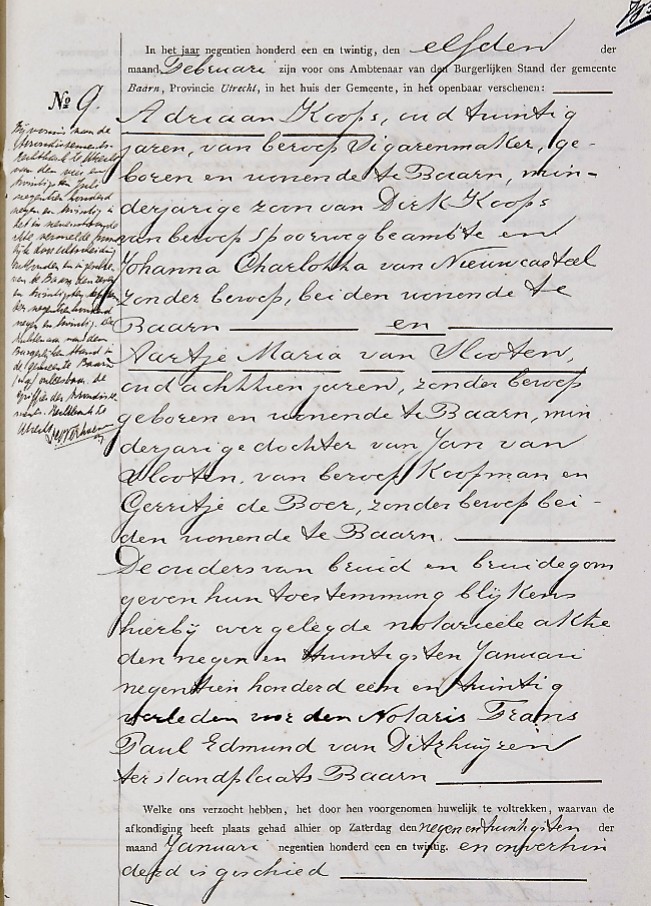 In het jaar negentien honderd een en twintig, den elfden der
maand Februari zijn voor ons Ambtenaar van den Burgerlijken Stand der gemeente
Baarn, Provincie Utrecht, in het huis der Gemeente, in het openbaar verschenen:
No 9.
Adriaan Koops, oud twintig
jaren, van beroep Sigarenmaker, ge-
boren en wonende te Baarn, min-
derjarige zoon van Dirk Koops
van beroep spoorwegbeambte en
Johanna Charlotta van Nieuwcasteel
zonder beroep, beiden wonende te
Baarn en
Aartje Maria van Slooten,
oud achttien jaren, zonder beroep
geboren en wonende te Baarn, min
derjarige dochter van Jan van
Slooten, van beroep Koopman en
Gerritje de Boer, zonder beroep bei-
den wonende te Baarn.
De ouders van bruid en bruidegom
geven hun toestemming blijkens
hierbij overgelegde notarieele akte
den negen en twintigsten Januari
negentien honderd een en twintig
verleden voor den Notaris Frans
Paul Edmund van Ditzhuyzen
ter standplaats Baarn
Welke ons verzocht hebben, het door hen voorgenomen huwelijk te voltrekken, waarvan de
afkondiging heeft plaats gehad alhier op Zaterdag den negen en twintigsten der
maand Januari negentien honderd een en twintig. en onverhin
derd is geschied
Bij vonnis van de
Arrondissements-
rechtbank te Utrecht
van den
twintigsten Juli
negentien honderd
negen en twintig is
het in nevenstaande
akte vermelde huwe
lijk door echtscheiding
ontbonden
van de Baarn den
en twintigsten
ber negentienhonderd
negen en twintig. De
Ambtenaar van den
Burgerlijken Stand in
de gemeente Baarn
de
Griffier der Arrondisse
ments Rechtbank te
Utrecht